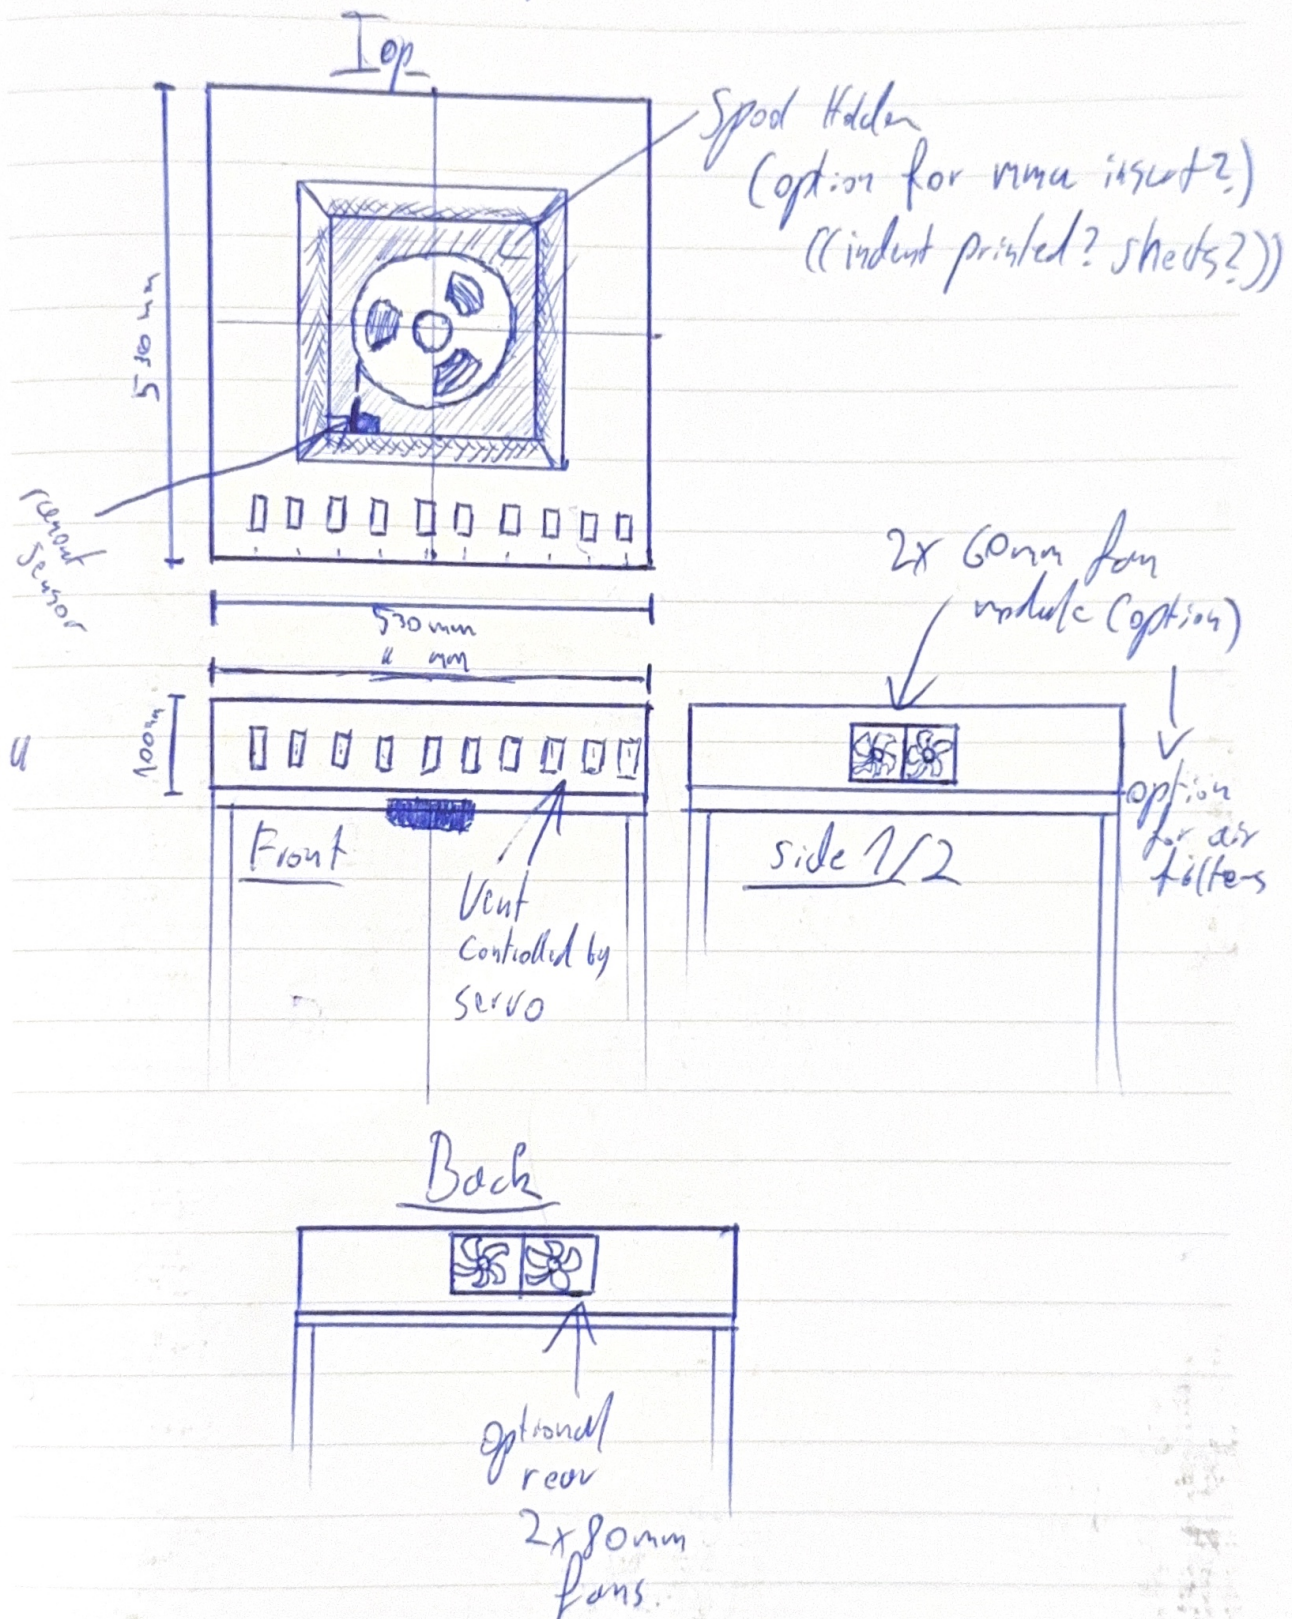 Top
Spool Holder
(option for mmu insert?)
((indent printed? sheets?))
530 mm
runout
sensor
530 mm
" mm
2x 60mm fan
module (option)
100mm
option
for air
filters
Front
side 1/2
Vent
controlled by
servo
Back
optional
rear
2x80mm
fans.